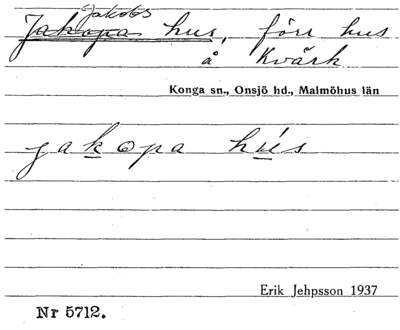 Jakobs
Jakopa hus, förr hus
å Kvärk
Konga sn., Onsjö hd., Malmöhus län
jakopa hús
Erik Jehpsson 1937
Nr 5712.